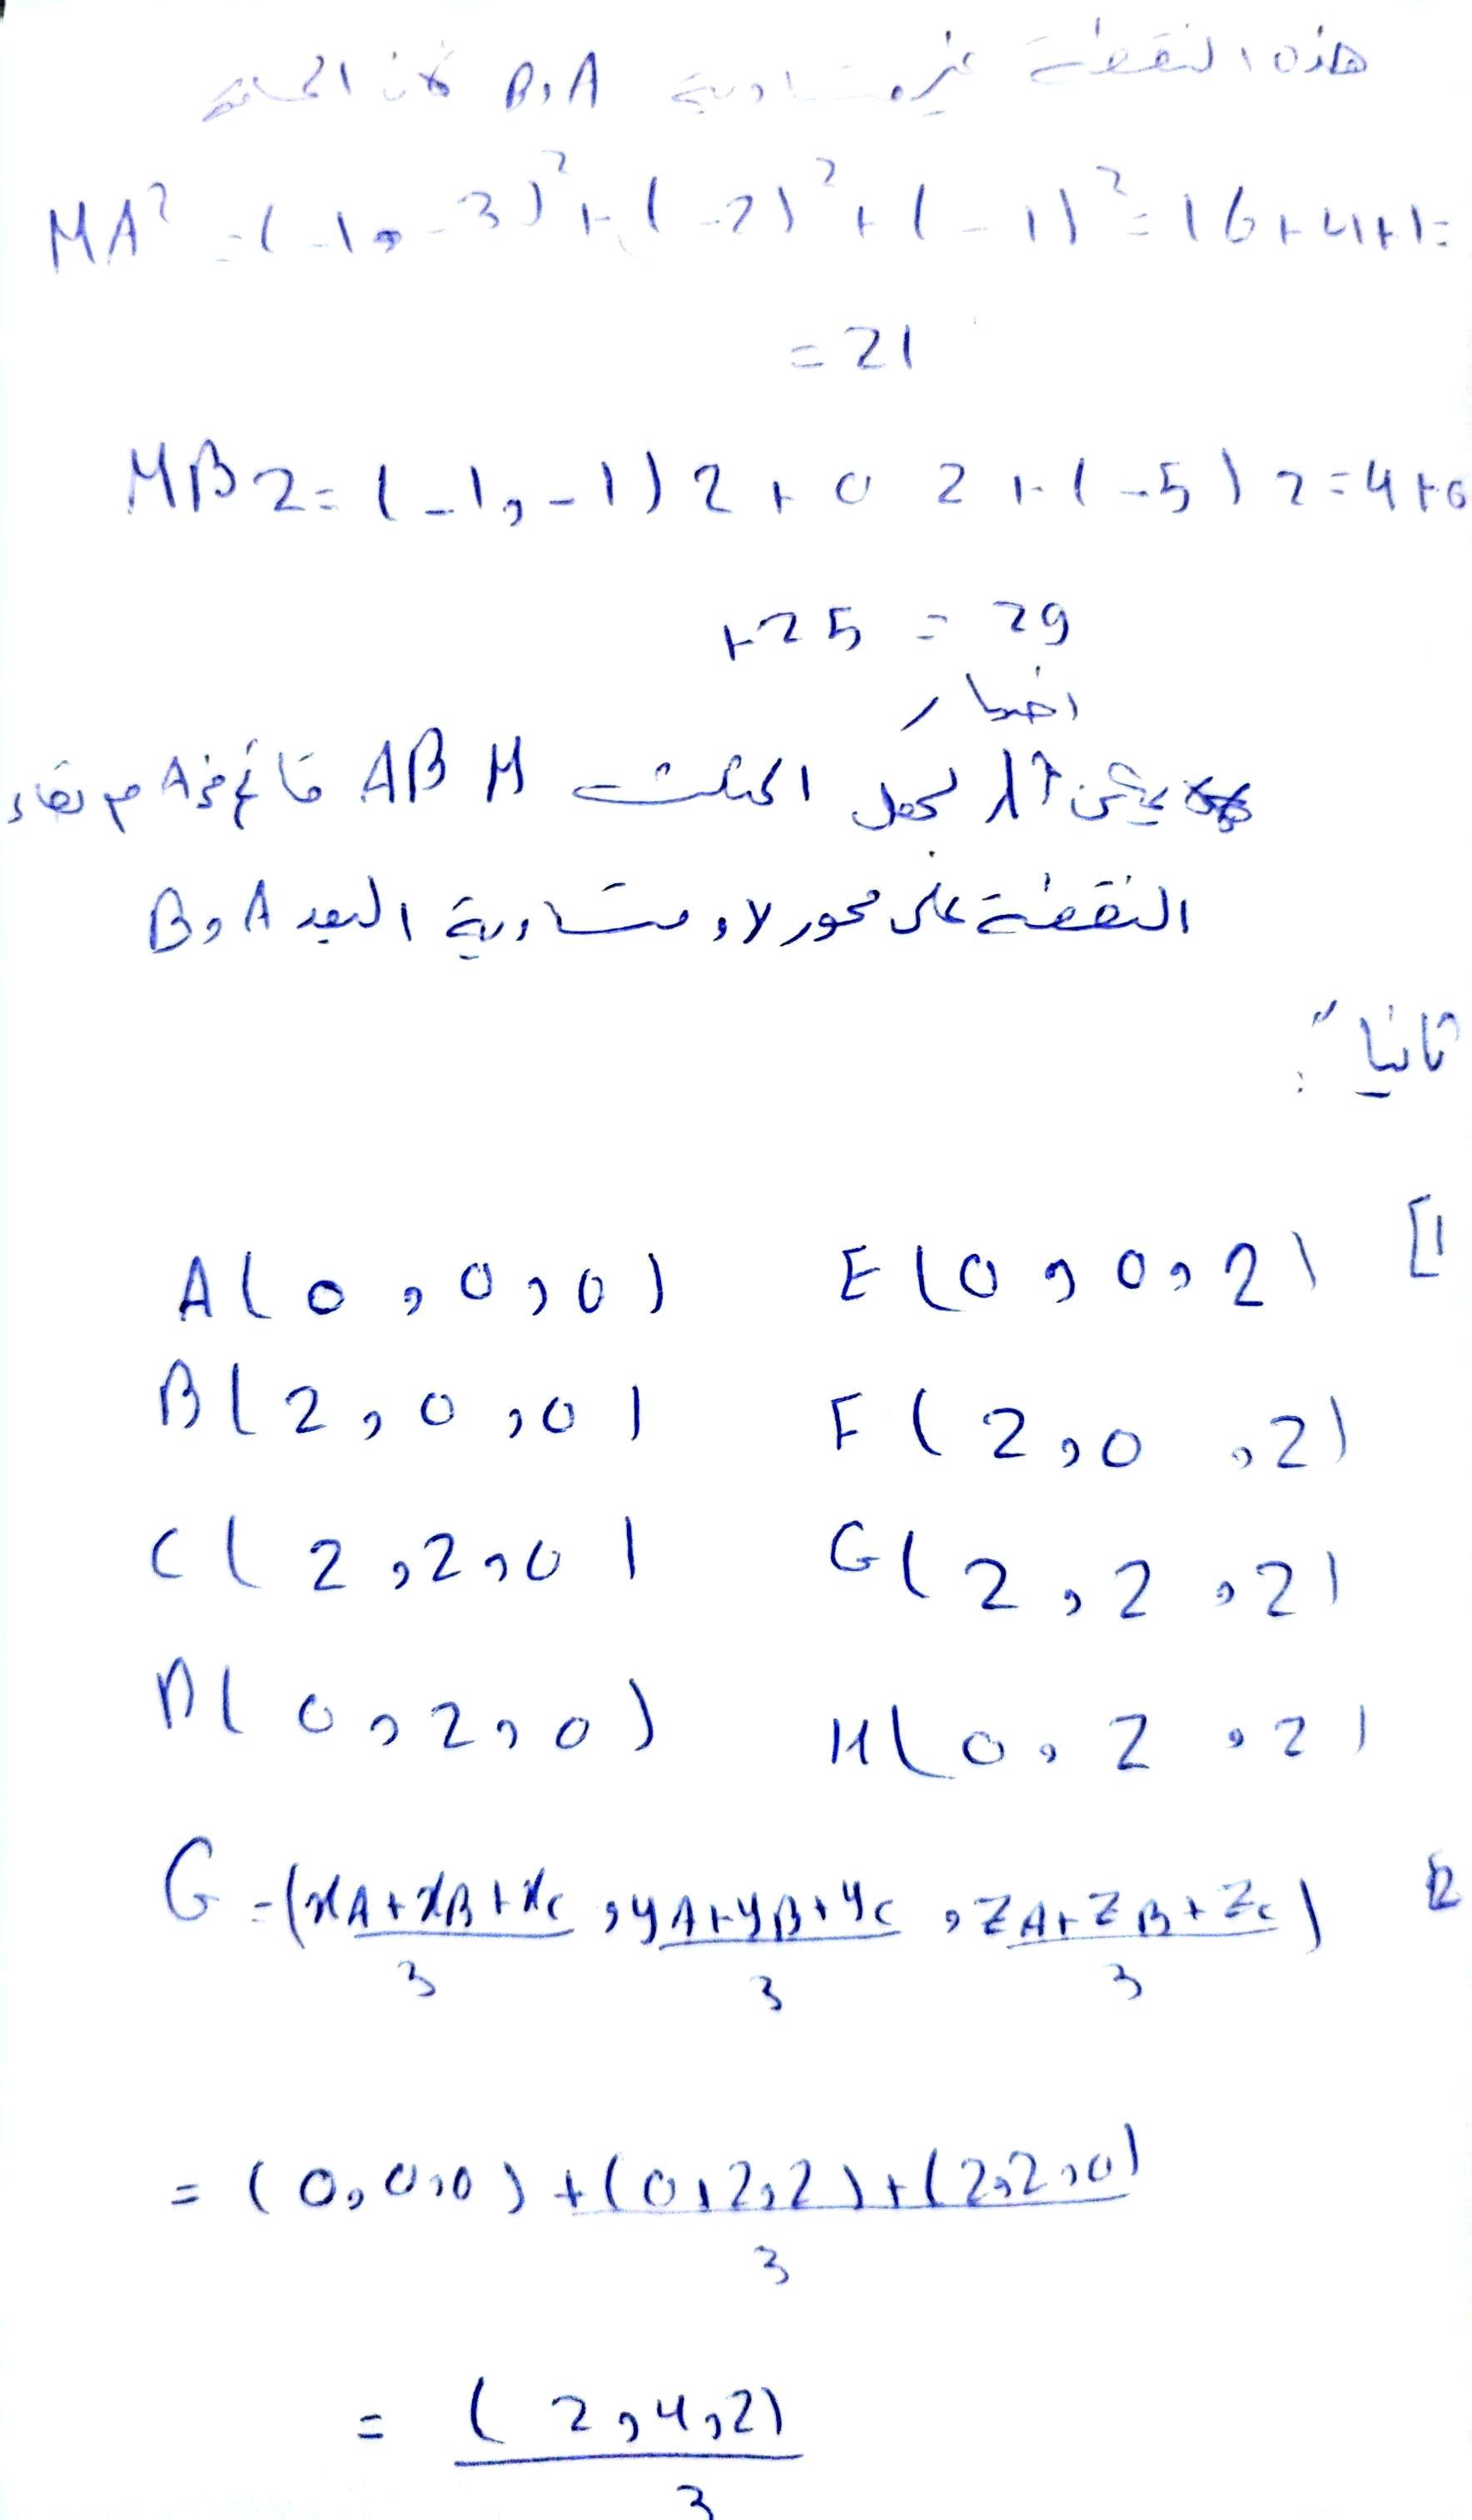 هذه النقطة غير متساوية B, A لأن
MA² = (-1, -3)² + (-2)² + (-1)² = 16+4+1=
= 21
MB2 = (-1, -1) 2 + 0 2 + (-5) 2 = 4+0
+25 = 29
اختيار
لجعل المثلث ABM قائم في A
النقطة على محور لا و متساوية البعد A و B
ثانيا":
1] A(0,0,0) E(0,0,2)
B(2,0,0) F(2,0,2)
C(2,2,0) G(2,2,2)
D(0,2,0) H(0,2,2)
2 G = (xA+xB+xC/3, yA+yB+yC/3, zA+zB+zC/3)
= (0,0,0)+(0,2,2)+(2,2,0)
3
= (2,4,2)
3